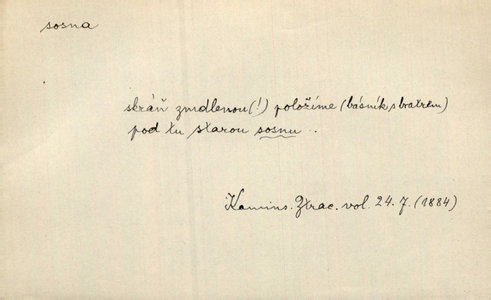 sosna
skráň zmdlenou(!) položíme (básník s bratrem)
pod tu starou sosnu ..
Kamins. Ztrac. vol. 24.7. (1884)